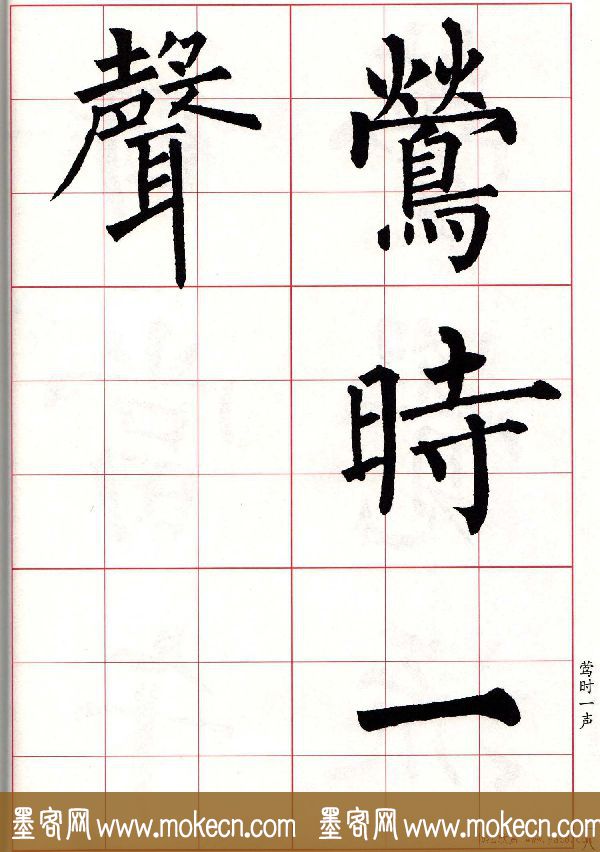 鶯時一
聲
莺时一声
墨客网 www.mokecn.com 墨客网 www.mokecn.com